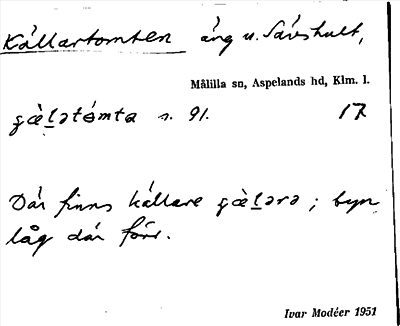 Källartomten äng u. Säveshult,
Målilla sn, Aspelands hd, Klm. l.
s. 91. 17
Där finns källare ; byn
låg där förr.
Ivar Modéer 1951